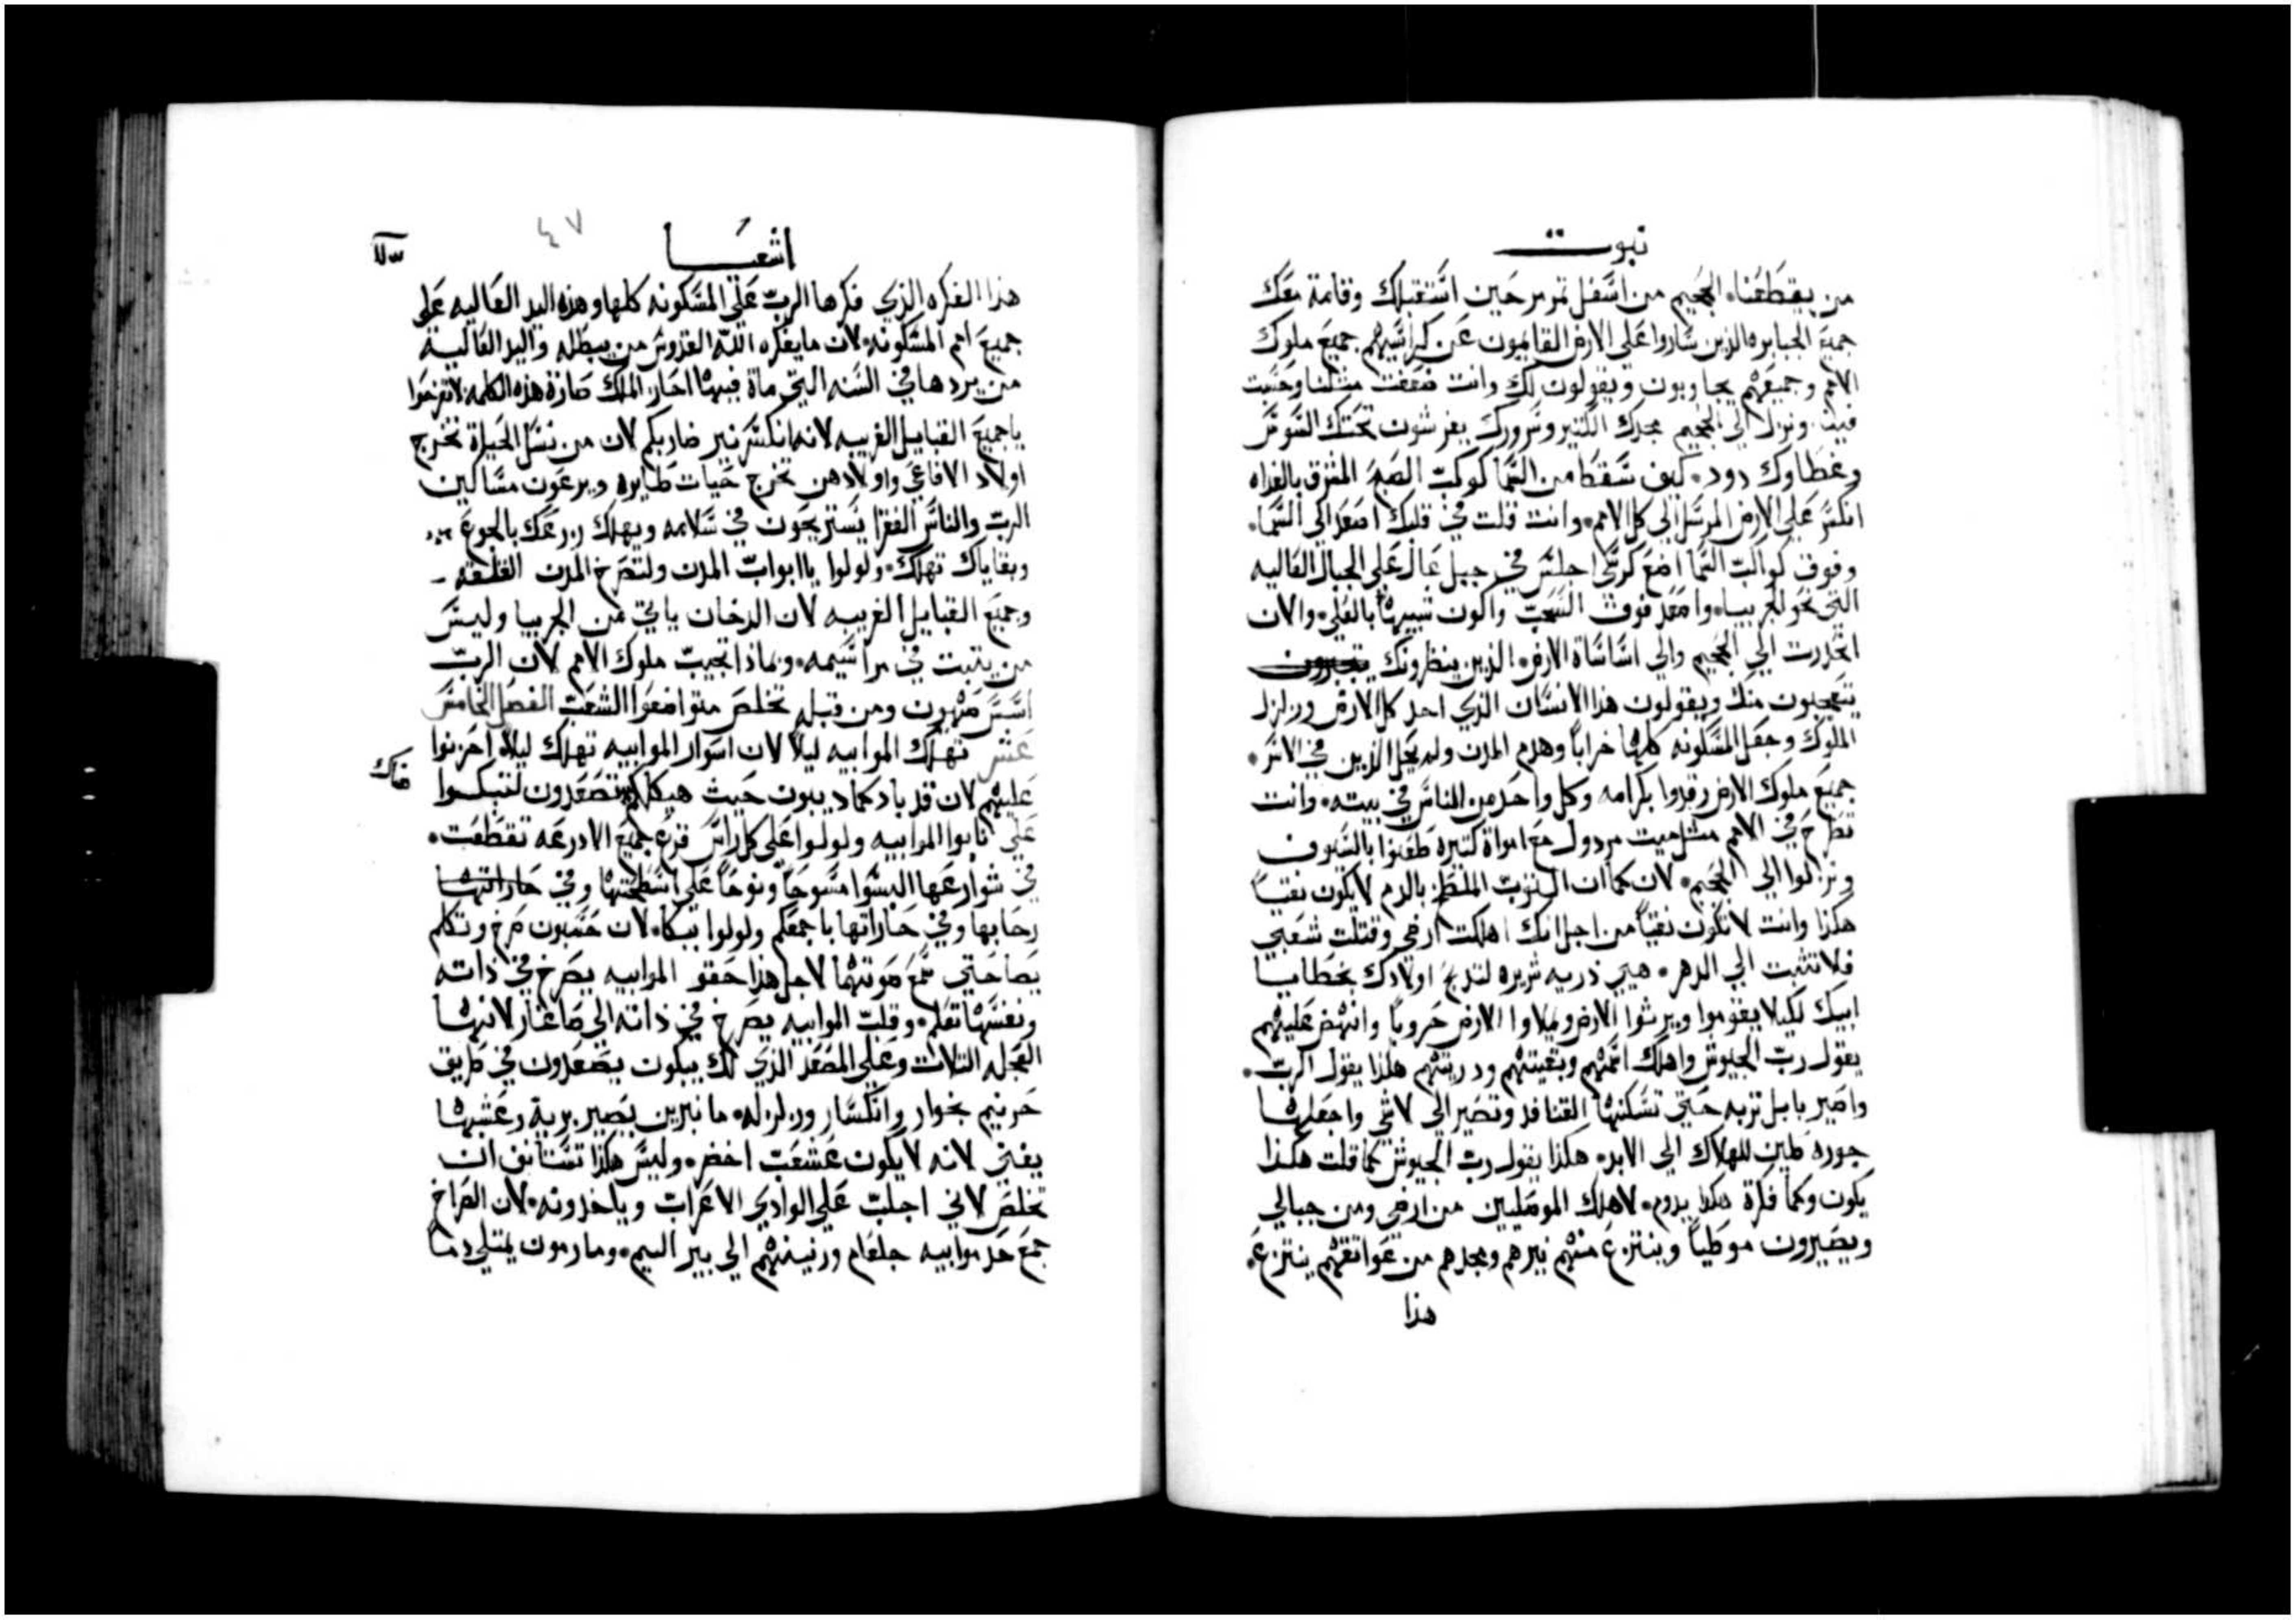 نبوت
من يقطعنا. الجحيم من اسفل تمرمر حين استقبلك وقامة معك
جميع الجبابره الذين ساروا علي الارض القايمون عن كراسيهم جميع ملوك
الامم وجميعهم يجاوبون ويقولون لك وانت ضعفت مثلنا وحسبت
فينا. ونزل الي الجحيم مجدك الكتير وسرورك يفرشون تحتك السوس
وغطاوك دود. كيف سقط من السما كوكب الصبح المشرق بالغداه
انكسر علي الارض المرسل الي كل الامم. وانت قلت في قلبك اصعد الي السما.
وفوق كواكب السما اضع كرسي اجلس في جبل عال علي الجبال العاليه
التي نحو الجربيا. واصعد فوق السحب واكون شبيهاً بالعلي. والان
انحدرت الي الجحيم والي اساساة الارض. الذين ينظرونك
يتعجبون منك ويقولون هذا الانسان الذي احد كل الارض وزلزل
الملوك وجعل المسكونه كلها خراباً وهدم المدن ولم يحل الذين في الاسر.
جميع ملوك الارض رقدوا بكرامه وكل واحد من الناس في بيته. وانت
تطرح في الامم مثل ميت مردول مع امواة كتيره طعنوا بالسيوف
ونزلوا الي الجحيم. لان كما ان التوب الملطخ بالدم لا يكون نقياً
هكذا وانت لا تكون نقياً من اجل انك اهلكت ارضي وقتلت شعبي
فلا تثبت الي الدهر. هيي ذريه شريره لتدبح اولادك بخطايا
ابيك لكيلا يقوموا ويرثوا الارض ويملاوا الارض حروباً وانهض عليهم
يقول رب الجيوش واهلك اسمهم وبقيتهم ودريتهم هكذا يقول الرب.
واصير بابل تربه حتي تسكنها القنافد وتصير الي لاشي واجعلها
جورة طين للهلاك الي الابد. هكذا يقول رب الجيوش كما قلت هكذا
يكون وكما فكرة هكذا يدوم. لاهلك الموصليين من ارضي ومن جبالي
ويصيرون موطياً وينتزع منهم نيرهم ومجدهم من عواتقهم ينتزع.
هذا
اشعيا
٤٧
هذا الفكره الذي فكرها الرب علي المسكونه كلها وهذه اليد العاليه علي
جميع امم المسكونه. لان ما يفكره الله القدوس من يبطله واليد العالية
من يردها في السنه التي ماة فيها احاز الملك صارة هذه الكلمه لا تفرحوا
يا جميع القبايل الغريبه لانه انكسر نير ضاربكم لان من نسل الحياة تخرج
اولاد الافاعي واولادهن تخرج حيات طايره ويرعون مساكين
الرب والناس الفقرا يستريحون في سلامه ويهلك زرعك بالجوع
وبقاياك تهلك. ولولوا يا ابواب المدن ولتصرخ المدن القلقه
وجميع القبايل الغريبه لان الدخان ياتي من الجربيا وليس
من يتبت في مراسيمه. وبماذا تجيب ملوك الامم لان الرب
اسس صهيون ومن قبله تخلص متواضعوا الشعب الفصل الخامس
عشر تهلك الموابيه ليلاً لان اسوار الموابيه تهلك ليلاً احزنوا
عليهم لان قد باد كما ديبون حيث هيكلكم تصعدون لتبكوا
علي نابوا الموابيه ولولوا علي كل راس قرع جميع الادرعه تقطعت.
في شوارعها البسوا مسوحاً ونوحاً علي اسطحتها وفي
رحابها وفي حاراتها باجمعكم ولولوا ببكا. لان حسبون صرخ وتكلم
يصا حتي سمع صوتهما لاجل هذا حقو الموابيه يصرخ في ذاته
ونفسها تعلم. وقلب الموابيه يصرخ في ذاته الي صاغار لانها
العجله التلات وعلي المصعد الذي لك يبكون يصعدون في طريق
حرنيم بخوار وانكسار وزلزله. ما نبرين يصير برية وعشبها
يفني لانه لا يكون عشعب اخضر. وليس هكذا تستانف ان
تخلص لاني اجلب علي الوادي الاعراب وياخدونه. لان الصراخ
جمع حد موابيه جلعام ورنينهم الي بير اليم. وما رمون يمتلي دما